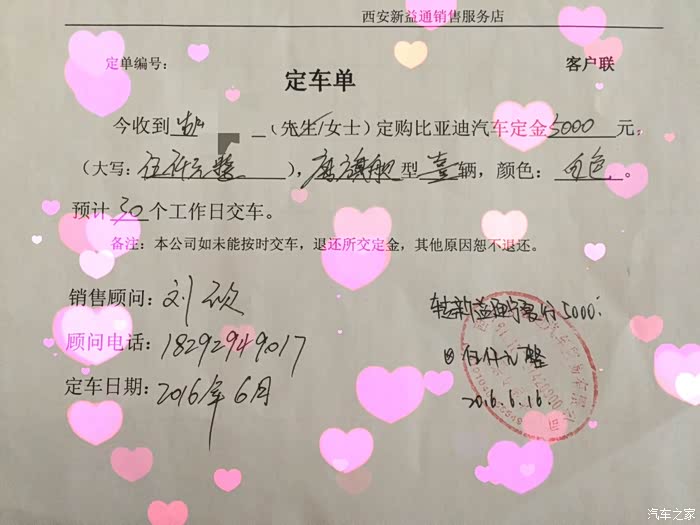 西安新益通销售服务店
定单编号:
客户联
定车单
今收到 (先生/女士)定购比亚迪汽车定金5000元,
(大写:伍仟元整),唐旗舰型壹辆,颜色:白色。
预计30个工作日交车。
备注:本公司如未能按时交车,退还所交定金,其他原因恕不退还。
销售顾问:刘欣
顾问电话:18292949017
定车日期:2016年6月
新益通 5000.
伍仟元整
2016.6.16.
汽车之家